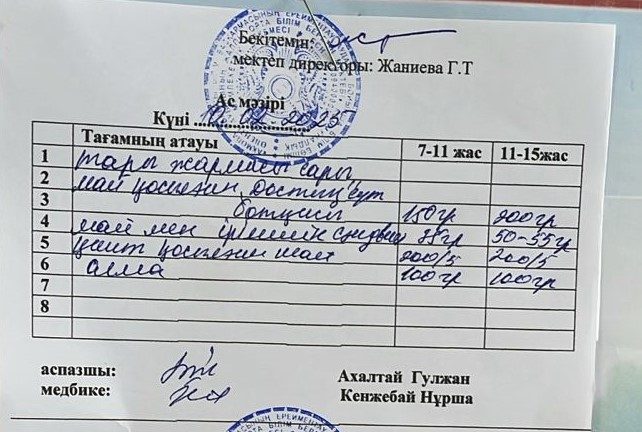 Бекітемін:
мектеп директоры: Жаниева Г.Т
Ас мәзірі
Күні .................... 10.02-2025
Тағамның атауы 7-11 жас 11-15жас
1 тары жармасы сары
2 май қосылған, достық сүт
3 ботқасы 150гр 200гр
4 май мен ірімшік сэндвич 35гр 50-55гр
5 қосылған шай 200/5 200/5
6 алма 100гр 100гр
7
8
аспазшы: Ахалтай Гулжан
медбике: Кенжебай Нұрша